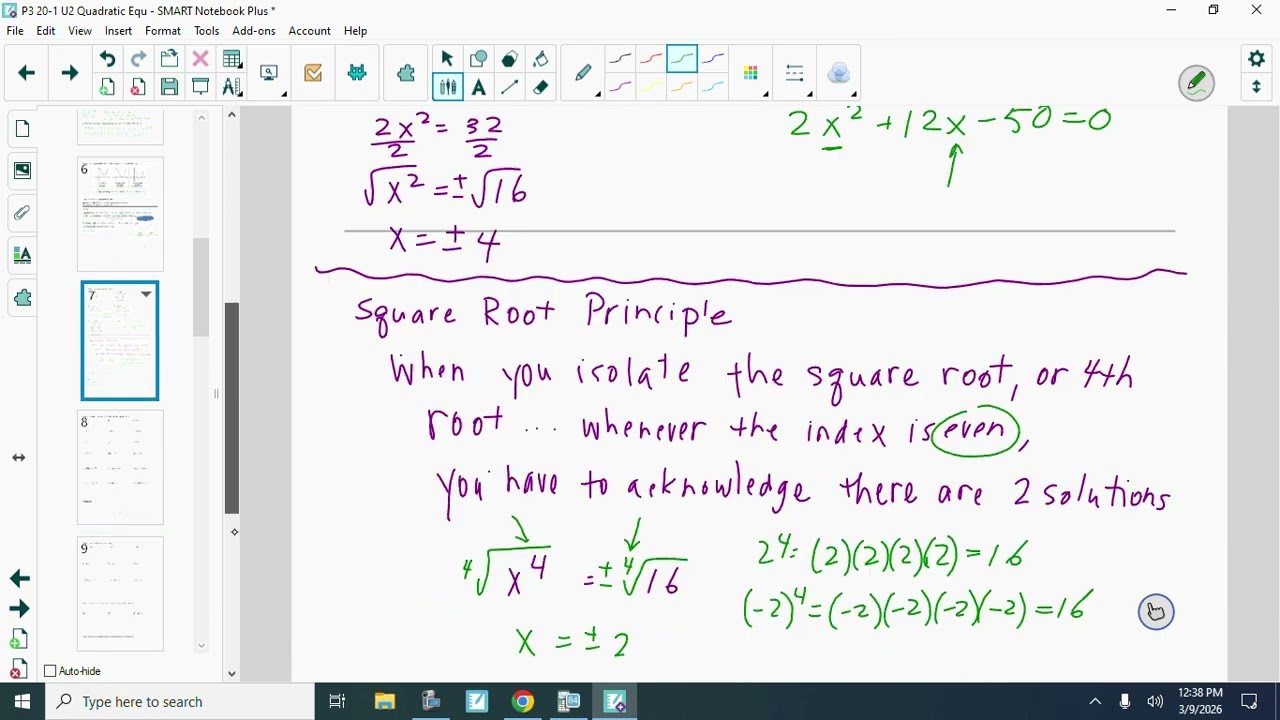 P3 20-1 U2 Quadratic Equ - SMART Notebook Plus *
File Edit View Insert Format Tools Add-ons Account Help
2x² = 32
2 2
√x² = ±√16
x = ± 4
2x² + 12x - 50 = 0
Square Root Principle
When you isolate the square root, or 4th
root ... whenever the index is even,
you have to acknowledge there are 2 solutions
⁴√x⁴ = ± ⁴√16
x = ± 2
2⁴ = (2)(2)(2)(2) = 16
(-2)⁴ = (-2)(-2)(-2)(-2) = 16
6
7
8
9
Auto-hide
Type here to search
12:38 PM
3/9/2026